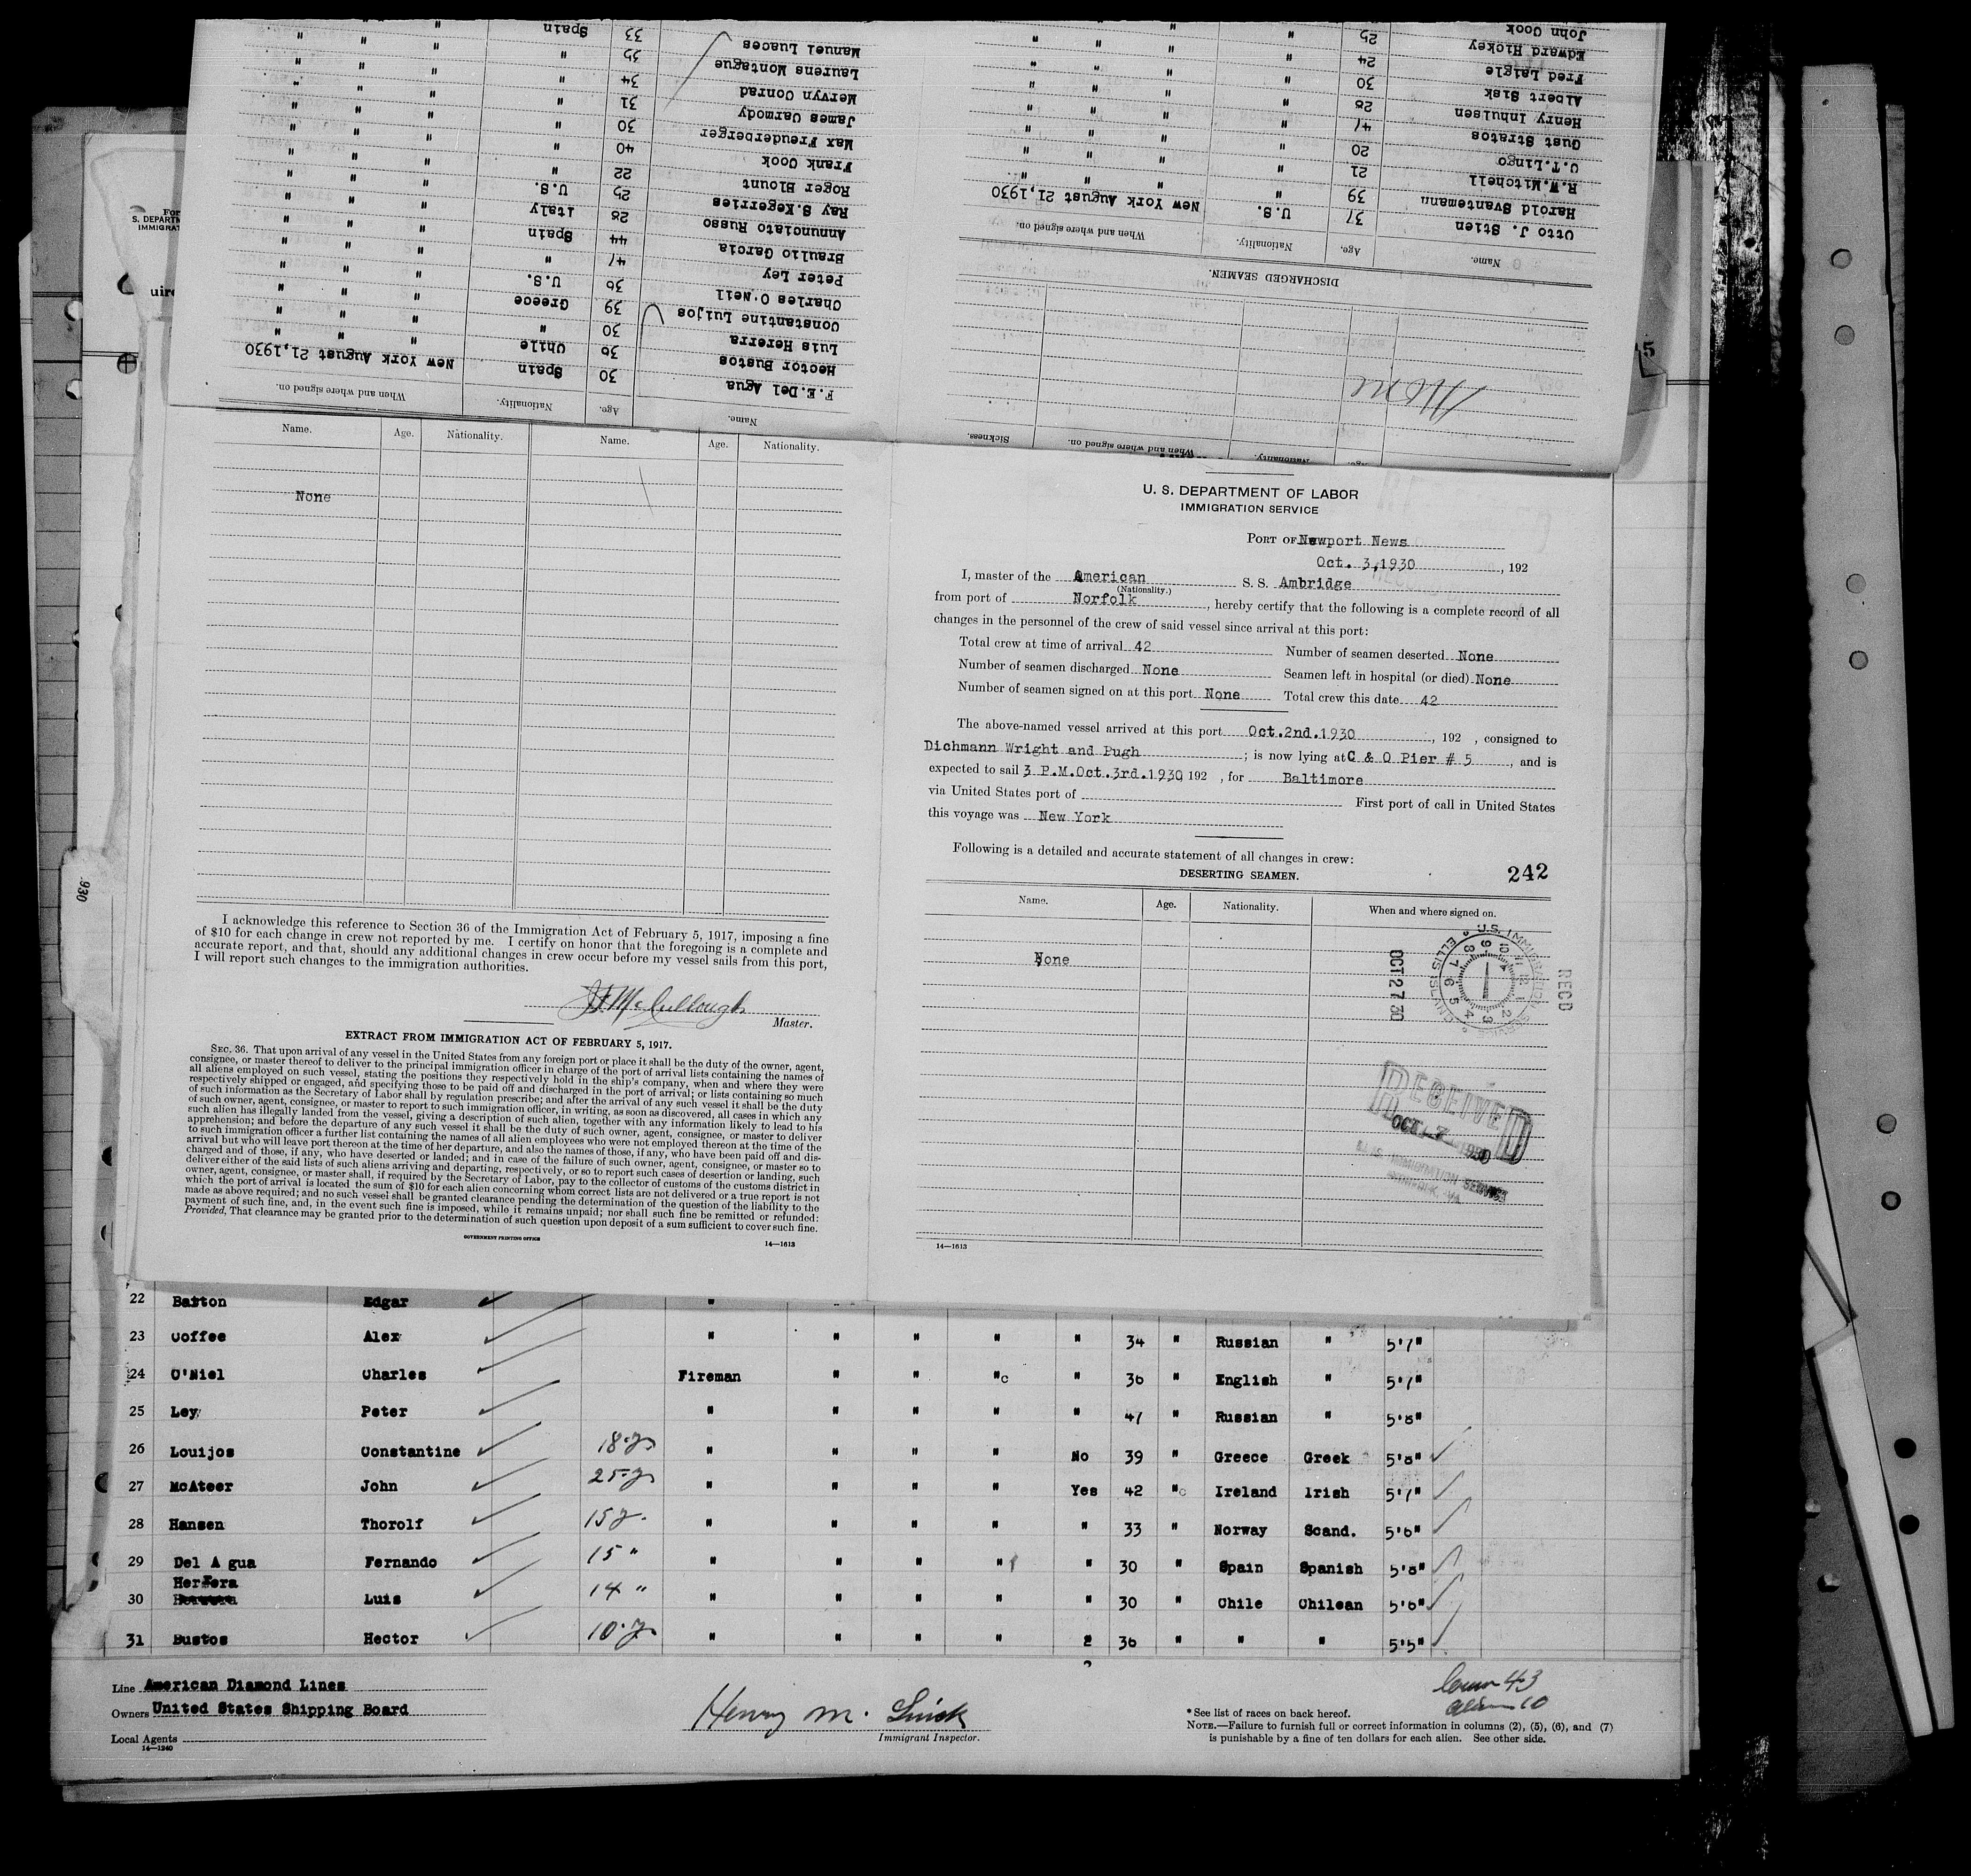 Manuel Luaces 33 Spain " " "
Laurens Montague 35 " " " "
Mervyn Conrad 34 " " " "
James Carmody 31 " " " "
Max Freuderberger 30 " " " "
Frank Cook 40 " " " "
Roger Blount 22 " " " "
Ray S.Kegerries 25 U.S. " " "
Annunciato Russo 28 Italy " " "
Braulio Garcia 44 Spain " " "
Peter Ley 47 " " " "
Charles O'Neil 36 U.S. " " "
Constantine Luijos 39 Greece " " "
Luis Hererra 30 " " " "
Hector Bustos 36 Chile " " "
F.E.Del Agua 30 Spain New York August 21,1930
Name. Age. Nationality. When and where signed on.
John Cook
Edward Hickey 25 " " " "
Fred Laigle 24 " " " "
Albert Sisk 30 " " " "
Henry Inhulsen 28 " " " "
Gust Stratos 47 " " " "
C.T.Lingo 20 " " " "
R.W.Mitchell 21 " " " "
Harold Svantemann 39 " New York August 21,1930
Otto J. Stien 37 U.S.
Name. Age. Nationality. When and where signed on.
DISCHARGED SEAMEN.
None
Age. Nationality. When and where signed on. Sickness.
Name. Age. Nationality. Name. Age. Nationality.
None
I acknowledge this reference to Section 36 of the Immigration Act of February 5, 1917, imposing a fine
of $10 for each change in crew not reported by me. I certify on honor that the foregoing is a complete and
accurate report, and that, should any additional changes in crew occur before my vessel sails from this port,
I will report such changes to the immigration authorities.
McCullough
Master.
EXTRACT FROM IMMIGRATION ACT OF FEBRUARY 5, 1917.
SEC. 36. That upon arrival of any vessel in the United States from any foreign port or place it shall be the duty of the owner, agent,
consignee, or master thereof to deliver to the principal immigration officer in charge of the port of arrival lists containing the names of
all aliens employed on such vessel, stating the positions they respectively hold in the ship's company, when and where they were
respectively shipped or engaged, and specifying those to be paid off and discharged in the port of arrival; or lists containing so much
of such information as the Secretary of Labor shall by regulation prescribe; and after the arrival of any such vessel it shall be the duty
of such owner, agent, consignee, or master to report to such immigration officer, in writing, as soon as discovered, all cases in which any
such alien has illegally landed from the vessel, giving a description of such alien, together with any information likely to lead to his
apprehension; and before the departure of any such vessel it shall be the duty of such owner, agent, consignee, or master to deliver
to such immigration officer a further list containing the names of all alien employees who were not employed thereon at the time of the
arrival but who will leave port thereon at the time of her departure, and also the names of those, if any, who have been paid off and dis-
charged and of those, if any, who have deserted or landed; and in case of the failure of such owner, agent, consignee, or master so to
deliver either of the said lists of such aliens arriving and departing, respectively, or so to report such cases of desertion or landing, such
owner, agent, consignee, or master shall, if required by the Secretary of Labor, pay to the collector of customs of the customs district in
which the port of arrival is located the sum of $10 for each alien concerning whom correct lists are not delivered or a true report is not
made as above required; and no such vessel shall be granted clearance pending the determination of the question of the liability to the
payment of such fine, and, in the event such fine is imposed, while it remains unpaid; nor shall such fine be remitted or refunded:
Provided, That clearance may be granted prior to the determination of such question upon deposit of a sum sufficient to cover such fine.
GOVERNMENT PRINTING OFFICE
14—1613
U. S. DEPARTMENT OF LABOR
IMMIGRATION SERVICE
PORT OF Newport News
Oct. 3,1930, 192
I, master of the American S. S. Ambridge
(Nationality.)
from port of Norfolk, hereby certify that the following is a complete record of all
changes in the personnel of the crew of said vessel since arrival at this port:
Total crew at time of arrival 42 Number of seamen deserted None
Number of seamen discharged None Seamen left in hospital (or died) None
Number of seamen signed on at this port None Total crew this date 42
The above-named vessel arrived at this port Oct.2nd.1930, 192 , consigned to
Dichmann Wright and Pugh; is now lying at C & O Pier # 5, and is
expected to sail 3 P.M.Oct.3rd.1930 192 , for Baltimore
via United States port of First port of call in United States
this voyage was New York
Following is a detailed and accurate statement of all changes in crew:
DESERTING SEAMEN.
242
Name. Age. Nationality. When and where signed on.
None
U.S. IMMIGRATION SERVICE
ELLIS ISLAND
OCT 27 30
RECD
RECEIVED
OCT 7 1930
U.S. IMMIGRATION SERVICE
NORFOLK, VA.
14—1613
22 Barton Edgar "
23 Coffee Alex " " " " " 34 " Russian " 5'7"
24 O'Niel Charles Fireman " " "c " 36 " English " 5'7"
25 Ley Peter " " " " " 47 " Russian " 5'8"
26 Louijos Constantine 18-yr " " " " No 39 " Greece Greek 5'8"
27 McAteer John 25-yr " " " " Yes 42 "c Ireland Irish 5'7"
28 Hansen Thorolf 15y. " " " " " 33 " Norway Scand. 5'6"
29 Del A gua Fernando 15 " " " " " " 30 " Spain Spanish 5'8"
Herrera
30 Luis 14 " " " " " " 30 " Chile Chilean 5'6"
31 Bustos Hector 10-yr " " " " 2 36 " " " 5'5"
Line American Diamond Lines
Owners United States Shipping Board
Local Agents
14—1240
Henry M.
Immigrant Inspector.
43
alien 10
* See list of races on back hereof.
NOTE.—Failure to furnish full or correct information in columns (2), (5), (6), and (7)
is punishable by a fine of ten dollars for each alien. See other side.
S. DEPARTM
IMMIGRAT
uire
930
5